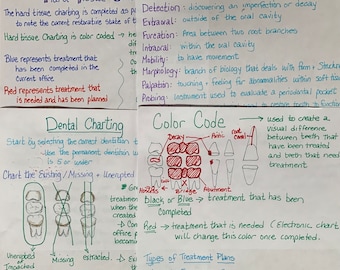 The hard tissue charting is completed as p
to the current restorative state of t
Hard tissue Charting is color coded →
Blue represents treatment that
has been completed in the
current office
Red represents treatment that
is needed and has been planned
Detection: discovering an imperfection or decay
Extraoral: outside of the oral cavity
Furcation: Area between two root branches
Intraoral: within the oral cavity
Mobility: to have movement
Morphology: branch of biology that deals with form + Structu
Palpation: touching + feeling for abnormalities within soft tiss
Probing: instrument used to evaluate a periodontal pocket
Dental Charting
Start by selecting the correct dentition t
• Use the permanent dentition w
is 5 or under
Chart the "Existing / Missing + Unerupted
Unerupted
or Impacted
Missing
extracted
Color Code
→ used to create a
visual difference
between teeth that
have been treated
and teeth that need
treatment
Decay
root canal
Bridge
Black or Blue → treatment that has been
Completed
Red → treatment that is needed (Electronic chart
will change this color once completed.
Types of Treatment Plans